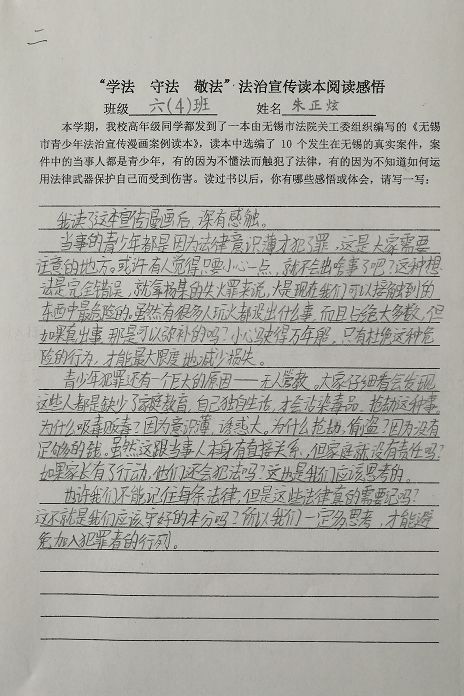 二
“学法 守法 敬法”法治宣传读本阅读感悟
班级 六(4)班 姓名 朱正炫
本学期，我校高年级同学都发到了一本由无锡市法院关工委组织编写的《无锡
市青少年法治宣传漫画案例读本》，读本中选编了 10 个发生在无锡的真实案件，案
件中的当事人都是青少年，有的因为不懂法而触犯了法律，有的因为不知道如何运
用法律武器保护自己而受到伤害。读过书以后，你有哪些感悟或体会，请写一写：
我读了这本宣传漫画后，深有感触。
当事的青少年都是因为法律意识薄才犯了罪，这是大家需要
注意的地方。或许有人觉得只要小心一点，就不会出啥事了吧？这种想
法是完全错误，就拿杨某的失火罪来说，火是现在我们可以接触到的
东西中最危险的。虽然有很多人玩火都没出什么事，而且占绝大多数，但
如果真出事，那是可以弥补的吗？小心驶得万年船，只有杜绝这种危
险的行为，才能最大限度地减少损失。
青少年犯罪还有一个巨大的原因——无人管教。大家仔细看会发现，
这些人都是缺少了家庭教育，自己独自生活，才会沾染毒品、抢劫这种事，
为什么吸毒贩毒？因为意识薄，诱惑大。为什么抢劫、偷盗？因为没有
足够的钱。虽然这跟当事人本身有直接关系，但家庭就没有责任吗？
如果家长有了行动，他们还会犯法吗？这也是我们应该思考的。
也许我们不能记住每条法律，但是这些法律真的需要记吗？
这不就是我们应该守好的本分吗？所以我们一定多思考，才能避
免加入犯罪者的行列。